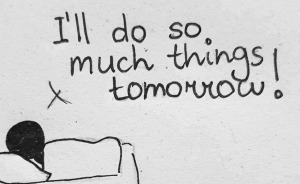 I'll do so
much things
tomorrow!